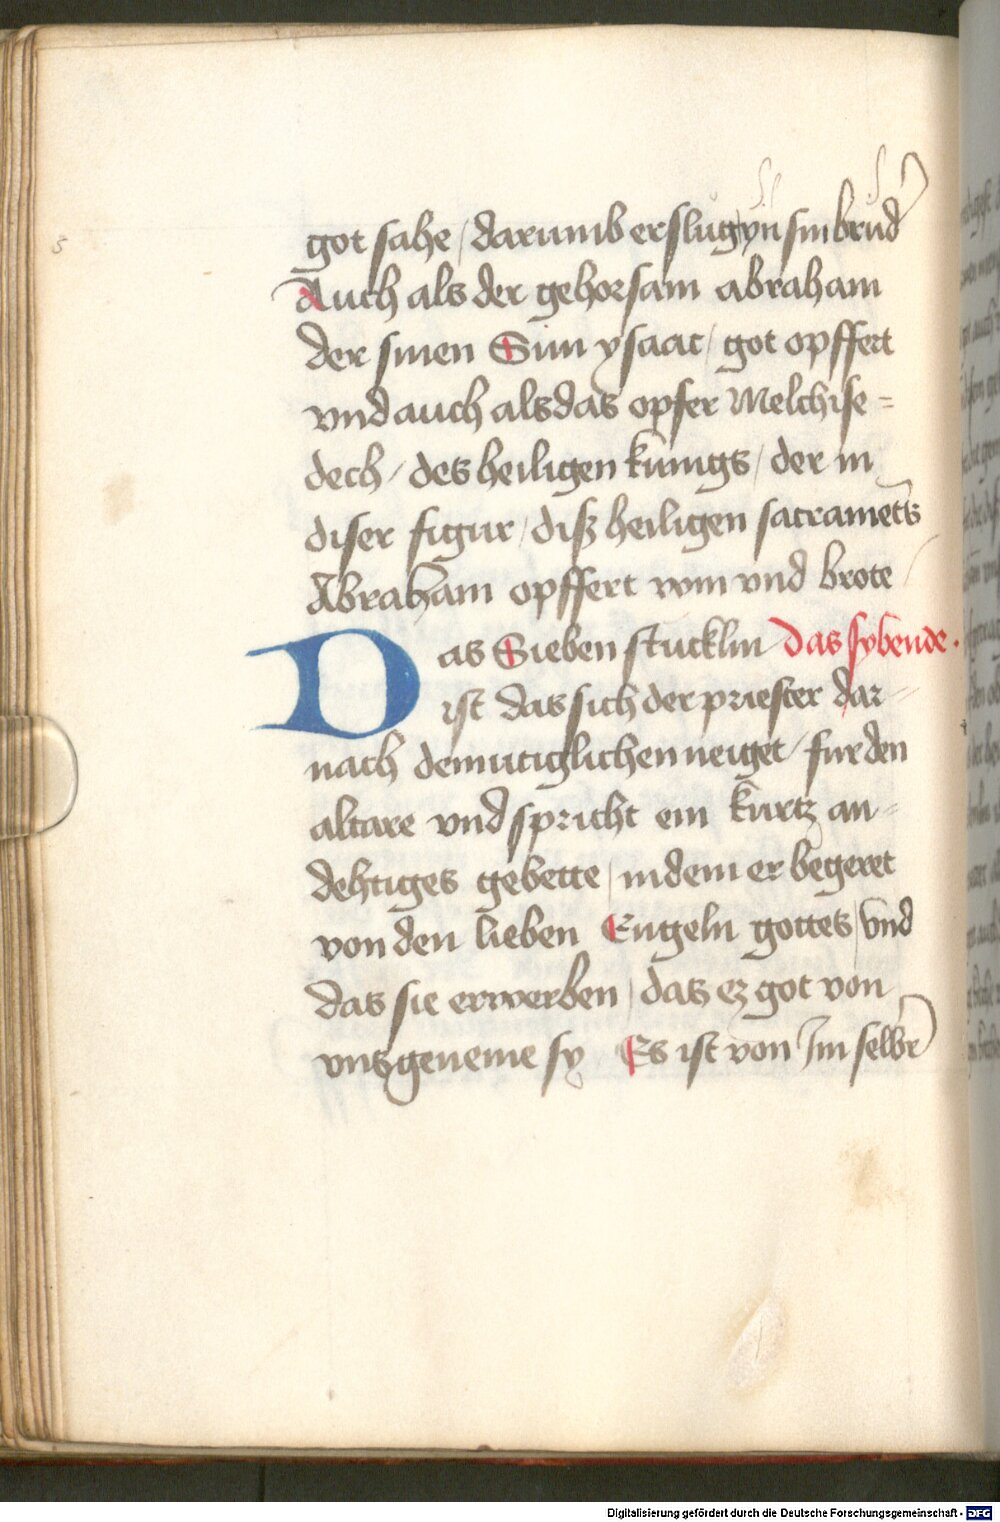 got sahe / darumb erslug yn sin brud
Auch als der gehorsam abraham
der sinen Sun ysaac / got opffert
vnd auch als das opfer Melchise =
dech / des heiligen kunigs / der in
diser figur / diß heiligen sacramets
Abraham opffert win vnd brote /
Das Sieben stucklin Das sybende .
ist das sich der priester dar-
nach demutiglichen neiget / fur den
altare vnd spricht ein kurtz an-
dehtiges gebette / indem er begeret
von den lieben Engeln gottes / vnd
das sie erwerben / das ez got von
vns geneme sy Es ist von Im selbr
Digitalisierung gefördert durch die Deutsche Forschungsgemeinschaft - DFG